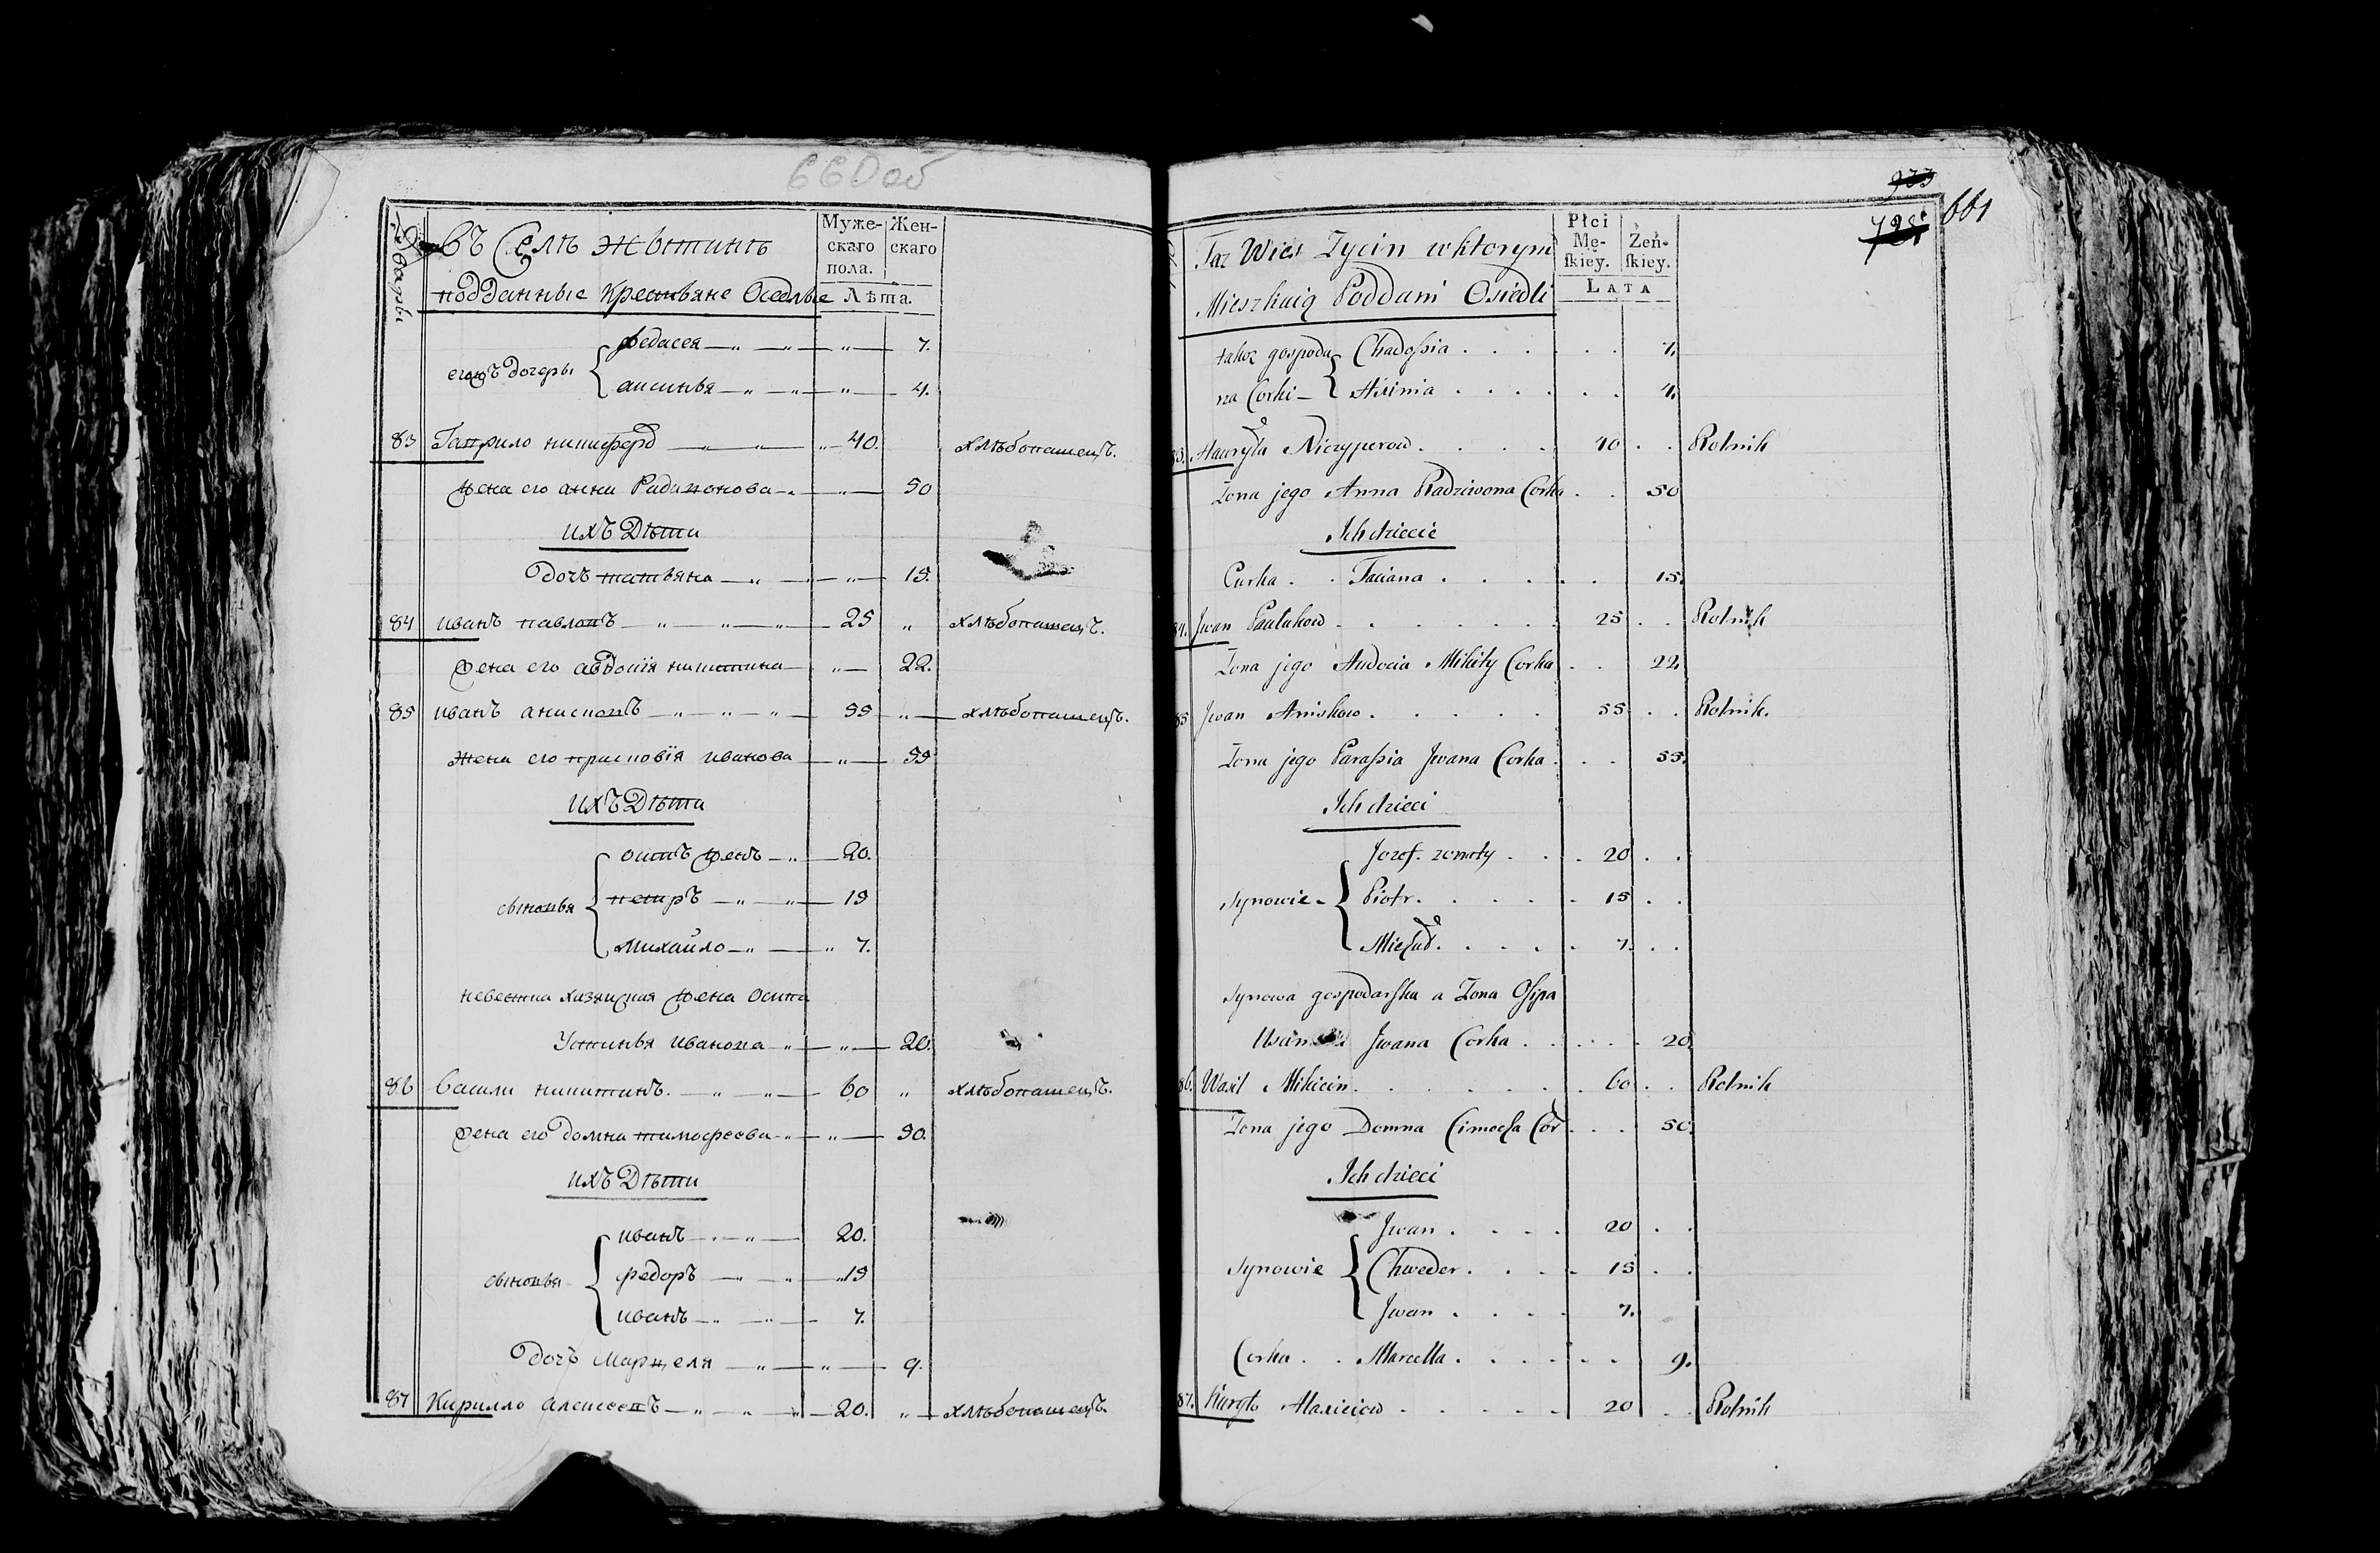 660об
Дворы
Въ Селѣ Жытинѣ
подданные Крестьяне Оседлые
Муже-
скаго
пола.
Жен-
скаго
Лѣта.
дочеры
Федасея 7.
аксинья 4.
83 Гаврило никифоровъ 40. хлѣбопашецъ.
жена его анна Радивонова 50
ихъ Дѣти
дочъ татьяна 15.
84 иванъ павловъ 25 хлѣбопашецъ.
жена его авдопія никитина 22.
85 иванъ анисковъ 55 хлѣбопашецъ.
жена его прасковія иванова 55
ихъ Дѣти
осипъ женъ 20.
сыновья петръ 15
михайло 7.
невестка хазяйская жена осипа
Устинья иванова 20.
86 Васили никитинъ. 60 хлѣбопашецъ.
жена его домна тимофеева 50.
ихъ Дѣти
иванъ 20.
сыновья федоръ 15
иванъ 7.
дочъ марцеля 9.
87 Кирилло алексеевъ 20. хлѣбопашецъ.
933
728
661
Taz Wieś Zycin w ktorym
Mieszkaią Poddani Osiedli
Płci
Mę-
ſkiey.
Żeń-
ſkiey.
LATA
takoz gospoda Chadoſsia 7.
na Corki Axinia 4.
83. Hawryła Niczyperow 40 Rolnik
Zona jego Anna Radziwona Corka 50
Ich dziecie
Curka Taciana 15.
84. Jwan Paulukow 25 Rolnik
Zona jego Audocia Mikity Corka 22.
85 Jwan Aniskow 55 Rolnik.
Zona jego Paraſsia Jwana Corka 55.
Ich dzieci
Jozef zonaty 20
Synowie Piotr 15
7.
Synowa gospodarſka a Zona Osipa
Jwana Corka 20
86. Wasil Mikicin 60 Rolnik
Zona jego Domna Cimocha Cor 50.
Ich dzieci
Jwan 20
Synowie Chweder 15
Jwan 7.
Corka Marcella 9.
87. Kuryło Alaxieiow 20 Rolnik